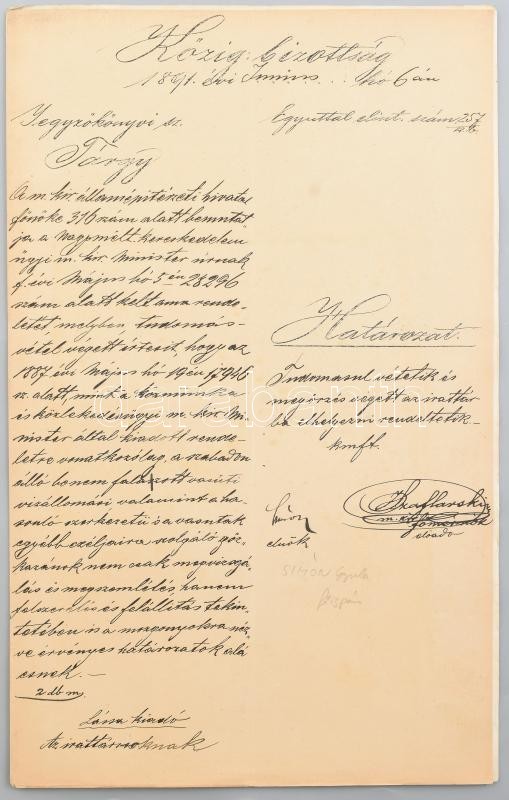 Közig. bizottság
1891. évi Junius hó 6 án
Jegyzőkönyvi sz.
Együttal elönt. szám 257
Tárgy
A m. kir. államépitészeti hivatal
főnöke 316 szám alatt bemutat
ja a Nagymélt. kereskedelem
ügyi m. kir. Minister úrnak
f. évi Május hó 5 én 28296
szám alatt kelt ama rende-
letét melyben, tudomás-
vétel végett értesit, hogy az
1887 évi Majus hó 19 én
sz. alatt, mint a közmunka
és közlekedésügyi m. kir. Mi-
nister által kiadott rende-
letre vonatkozólag, a szabadon
álló benem falazott vasúti
vizállomási valamint a ha-
sonló szerkezetü s a vasutak
egyébb czéljaira szolgáló göz-
kazánok nem csak megvizsgá-
lás és megszemlélés hanem
felszerelés és felállítás tekin-
tetében is a mozgonyokra néz-
ve érvényes határozatok alá
esnek. –
2 db m.
Lássa kiadó
Az irattárnoknak
Határozat.
Tudomásul vétetik és
megörzés végett az irattár-
ba elhelyezni rendeltetik
kmft.
Szaflarszky
m. kir.
főmérnök
előadó
Simon
elnök
SIMON Gyula
főispán
darabanth